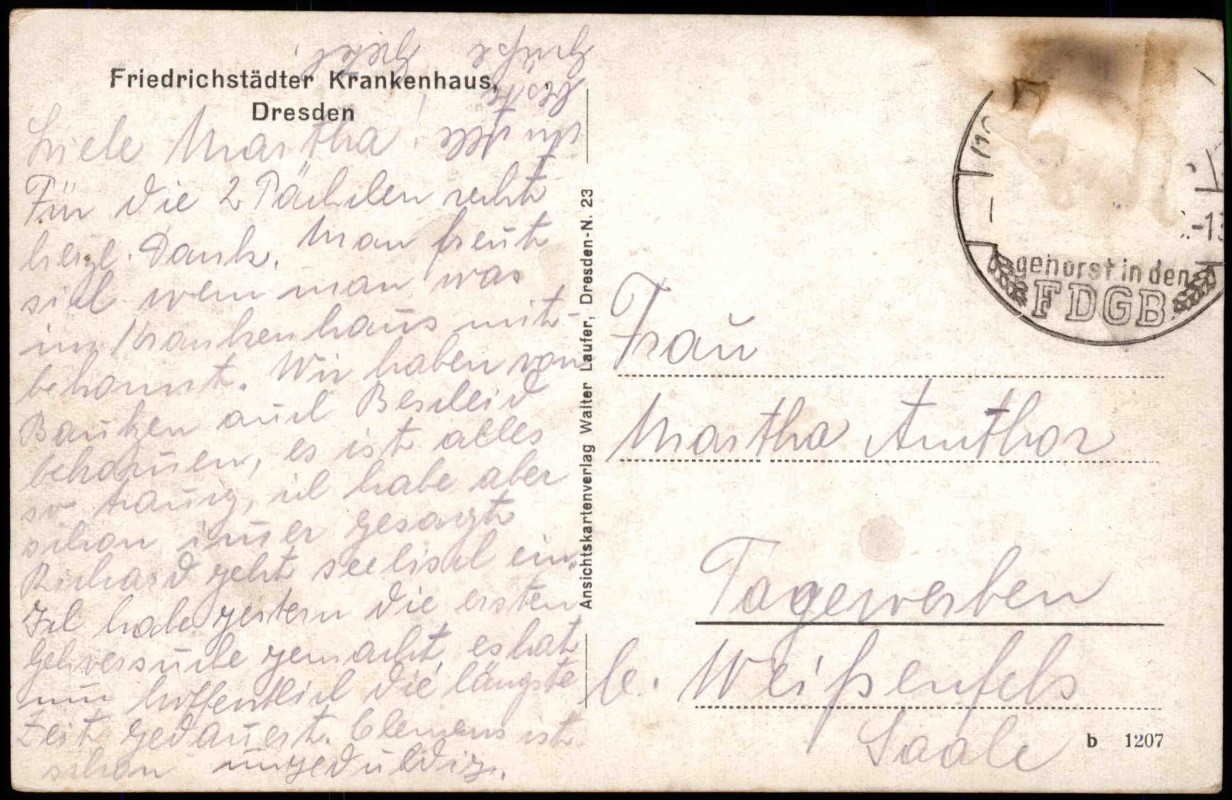 Friedrichstädter Krankenhaus,
Dresden
Liebe Martha!
Für die 2 Päckchen recht
herzl. Dank. Man freut
sich wenn man was
im Krankenhaus mit-
bekommt. Wir haben von
Bautzen auch Bescheid
bekommen, es ist alles
so traurig, ich habe aber
schon immer gesagt
Richard geht seelisch ein.
Ich habe gestern die ersten
Gehversuche gemacht, es hat
nun hoffentlich die längste
Zeit gedauert. Clemens ist
schon ungeduldig.
Grüße
Ansichtskartenverlag Walter Laufer, Dresden-N. 23
gehörst in den
FDGB
Frau
Martha Amthor
Tagewerben
b. Weißenfels
Saale
b 1207